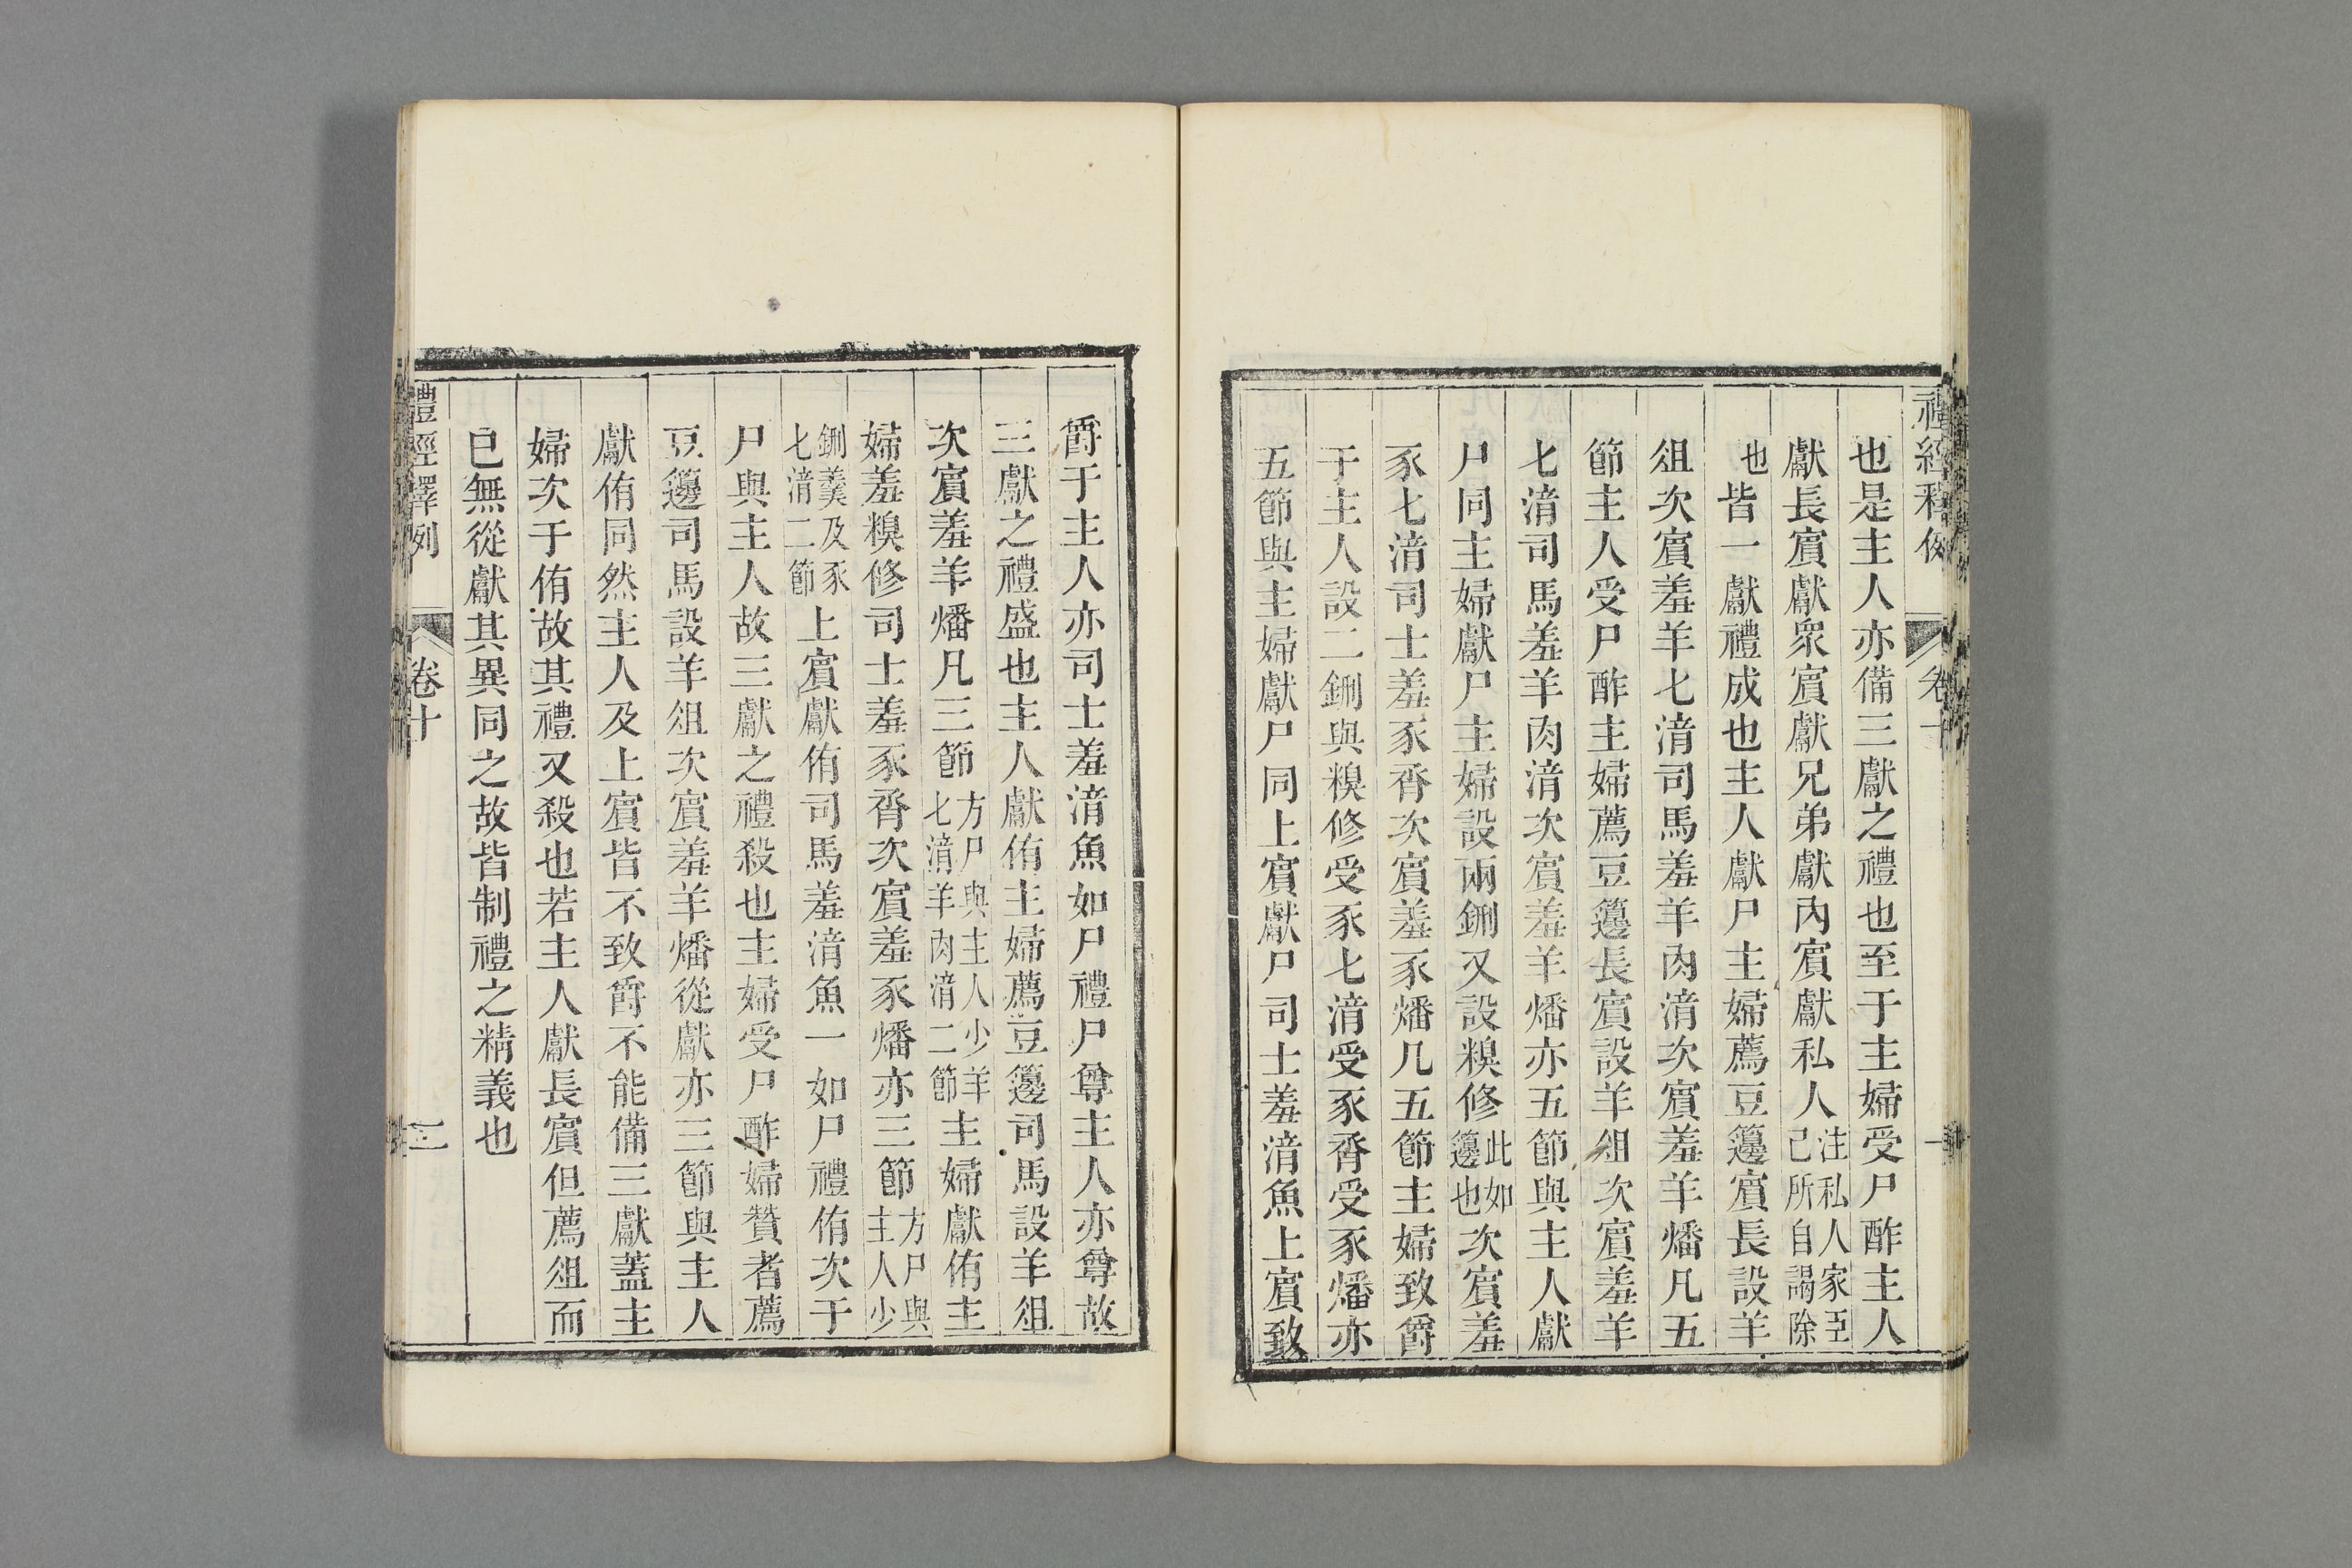 禮經釋例 卷十
也是主人亦備三獻之禮也至于主婦受尸酢主人
獻長賔獻衆賔獻兄弟獻內賔獻私人注私人家臣己所自謁除
也皆一獻禮成也主人獻尸主婦薦豆籩賔長設羊
俎次賔羞羊匕湆司馬羞羊肉湆次賔羞羊燔凡五
節主人受尸酢主婦薦豆籩長賔設羊俎次賔羞羊
匕湆司馬羞羊肉湆次賔羞羊燔亦五節與主人獻
尸同主婦獻尸主婦設兩鉶又設糗修此如籩也次賔羞
豕匕湆司士羞豕脀次賔羞豕燔凡五節主婦致爵
于主人設二鉶與糗修受豕匕湆受豕脀受豕燔亦
五節與主婦獻尸同上賔獻尸司士羞湆魚上賔致
爵于主人亦司士羞湆魚如尸禮尸尊主人亦尊故
三獻之禮盛也主人獻侑主婦薦豆籩司馬設羊俎
次賔羞羊燔凡三節方尸與主人少羊匕湆羊肉湆二節主婦獻侑主
婦羞糗修司士羞豕脀次賔羞豕燔亦三節方尸與主人少
鉶羹及豕匕湆二節上賔獻侑司馬羞湆魚一如尸禮侑次于
尸與主人故三獻之禮殺也主婦受尸酢婦贊者薦
豆籩司馬設羊俎次賔羞羊燔從獻亦三節與主人
獻侑同然主人及上賔皆不致爵不能備三獻蓋主
婦次于侑故其禮又殺也若主人獻長賔但薦俎而
已無從獻其異同之故皆制禮之精義也
禮經釋例 卷十 三